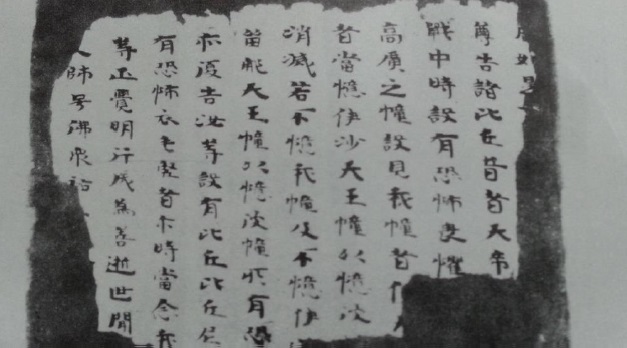 尊告諸比丘昔者天帝
戰中時設有恐怖畏懼
高廣之幢設見我幢者
者當憶伊沙天王幢以憶彼
消滅若不憶我幢及不憶伊
留那天王幢以憶彼幢所有恐
亦復告汝等設有比丘比丘尼
有恐怖衣毛竪者尒時當念我
等正覺明行成為善逝世間
人師号佛衆祐